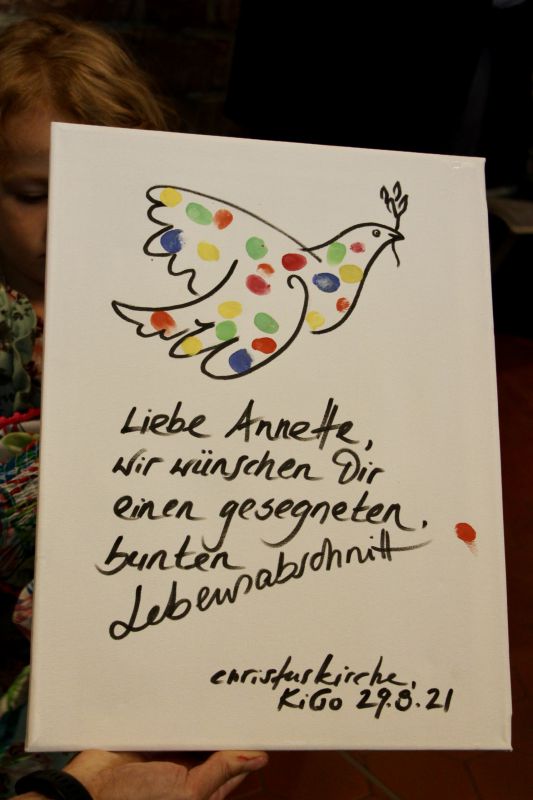 Liebe Annette,
wir wünschen Dir
einen gesegneten,
bunten
Lebensabschnitt
Christuskirche,
KiGo 29.8.21